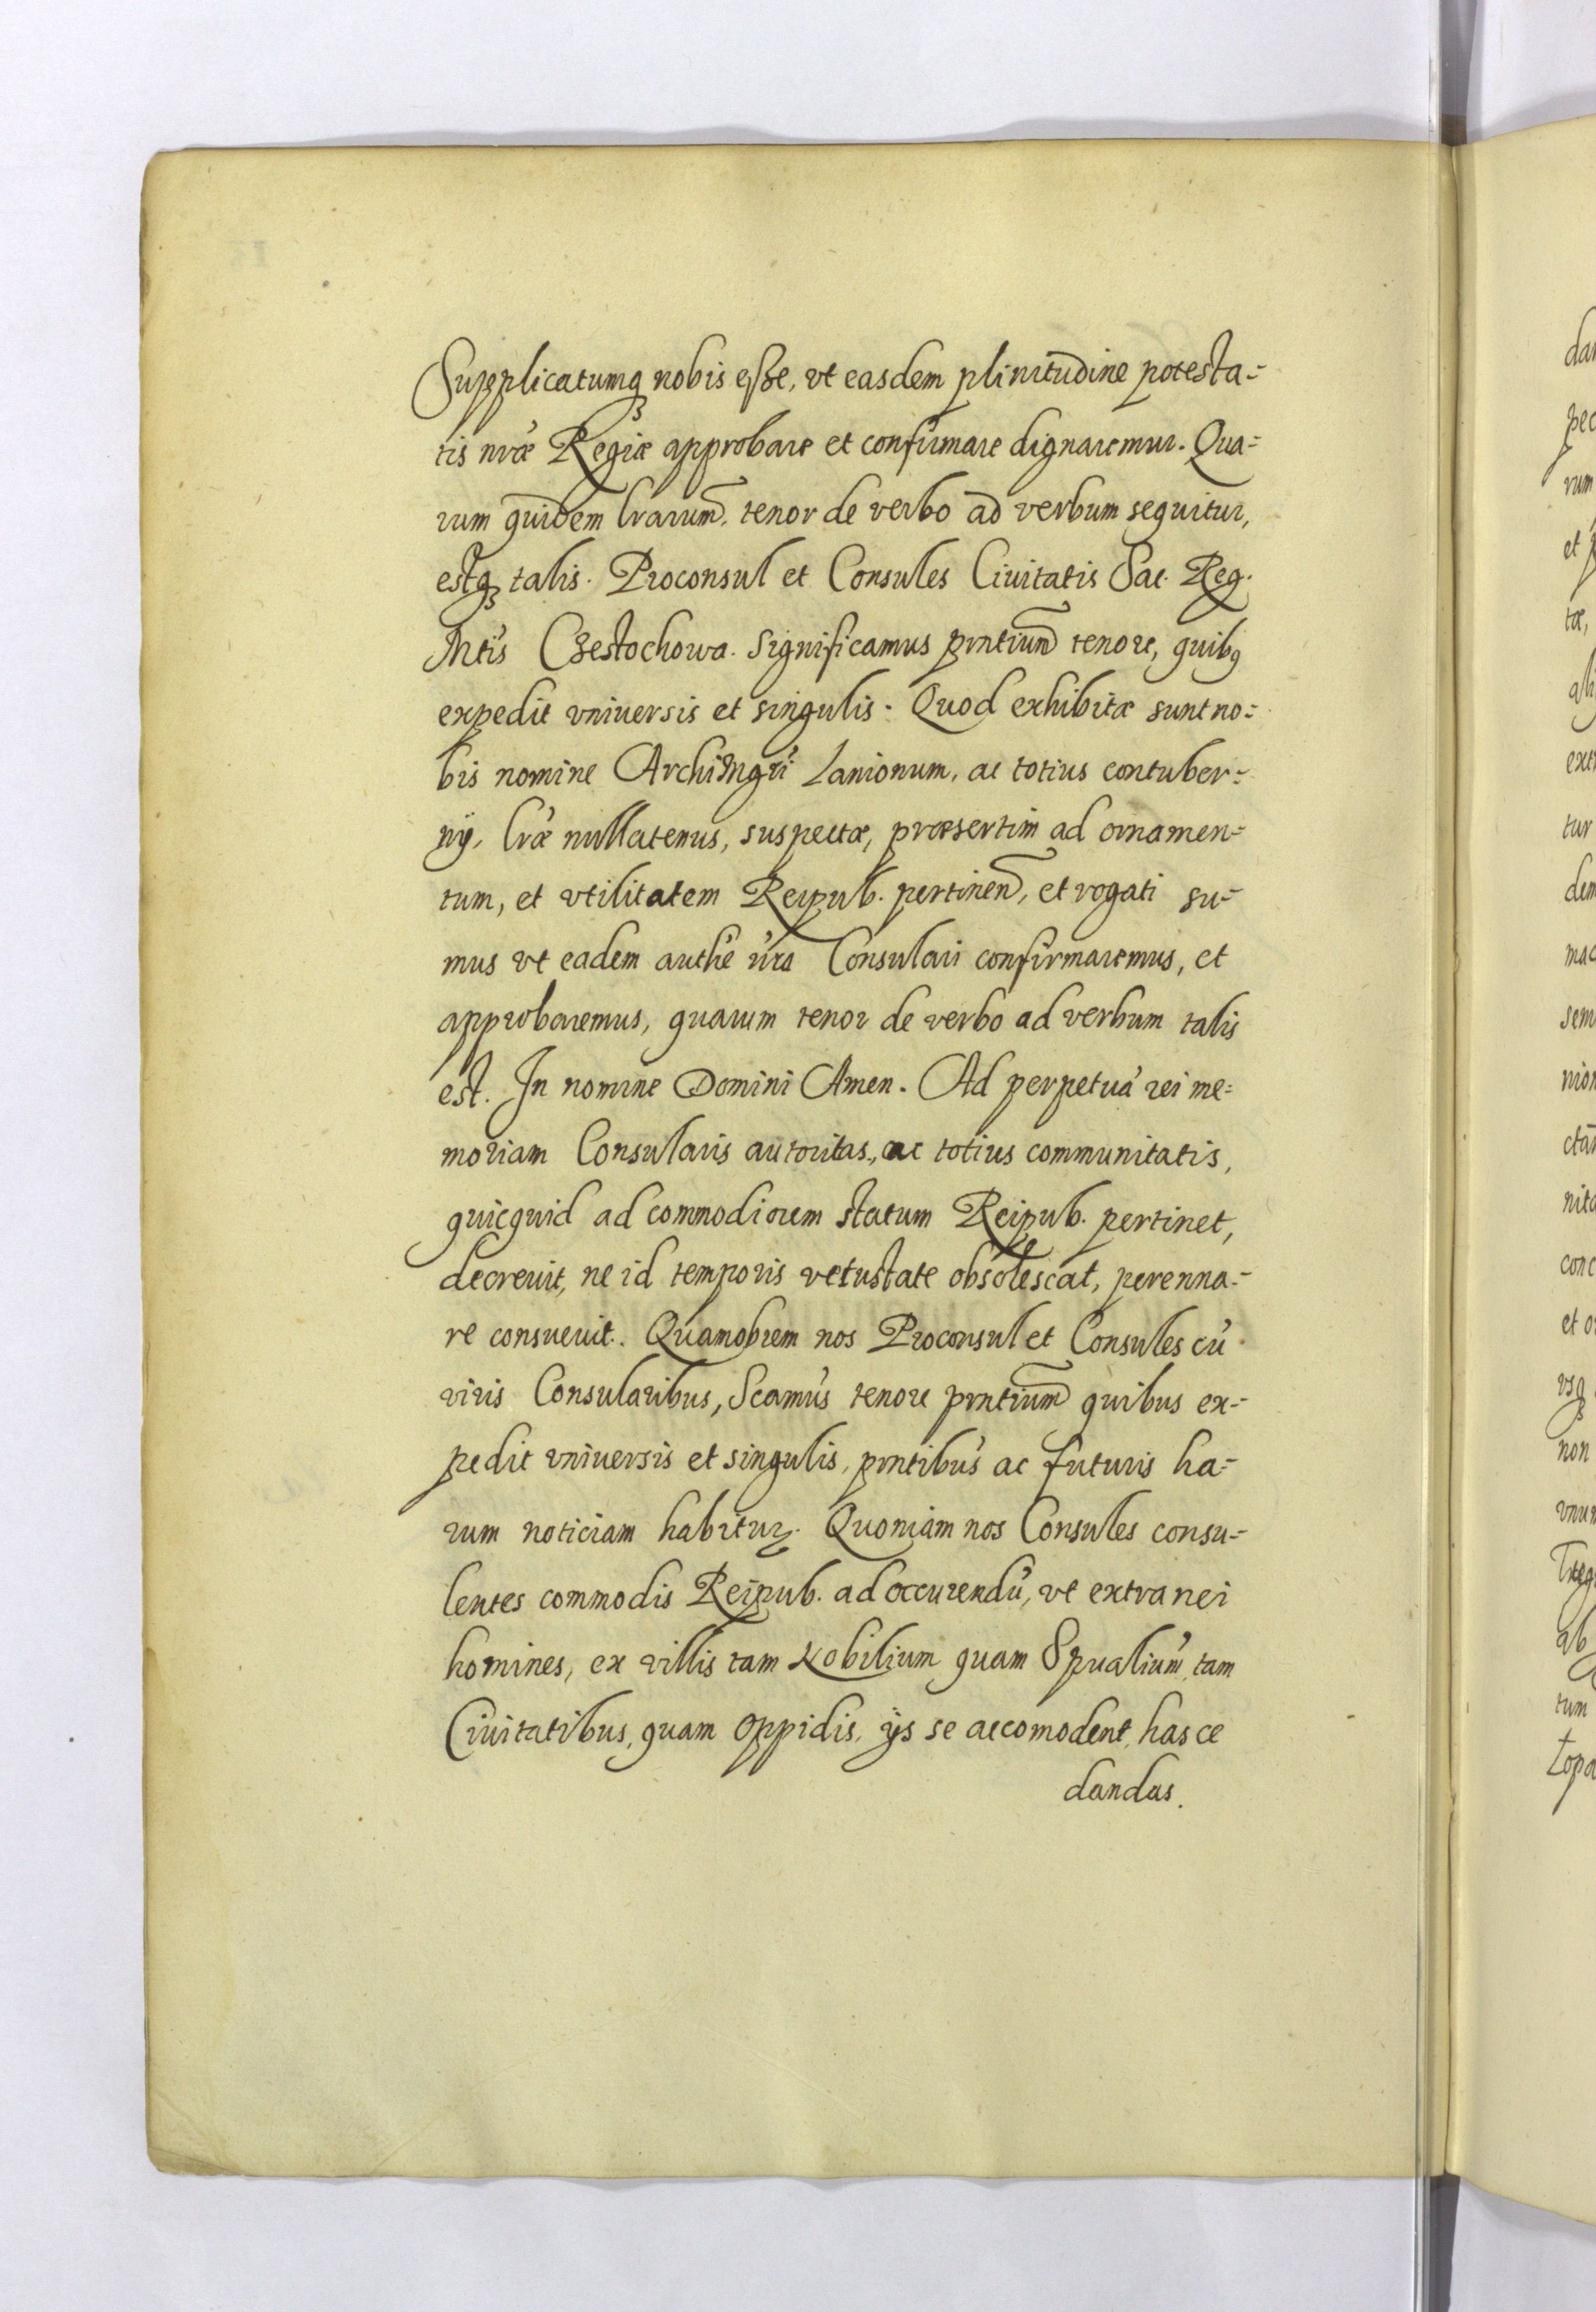 Supplicatumq₃ nobis esse, vt easdem plinitudine potesta=
tis nræ Regiæ approbare et confirmare dignaremur. Qua=
rum quidem lrarum, tenor de verbo ad verbum sequitur,
estq₃ talis. Proconsul et Consules Ciuitatis Sac. Reg.
Mtis Czestochowa. Significamus pntium tenore, quibꝰ
expedit vniuersis et singulis. Quod exhibitæ sunt no=
bis nomine ArchiMgri Lanionum, ac totius contuber=
nÿ, lræ nullatenus, suspectæ, præsertim ad ornamen=
tum, et vtilitatem Reipub. pertinen, et rogati su=
mus vt eadem authe nra Consulari confirmaremus, et
approbaremus, quarum tenor de verbo ad verbum talis
est. In nomine Domini Amen. Ad perpetuá rei me=
moriam Consularis autoritas, ac totius communitatis,
quicquid ad commodiorem statum Reipub. pertinet,
decreuit, ne id temporis vetustate obsolescat, perenna=
re consueuit. Quamobrem nos Proconsul et Consules cú
viris Consularibus, Scamús tenore pntium quibus ex=
pedit vniuersis et singulis, pntibús ac futuris ha=
rum noticiam habituꝝ. Quoniam nos Consules consu=
lentes commodis Reipub. ad occurendú, vt extranei
homines, ex villis tam Nobilium quam Spualiúm, tam
Ciuitatibus, quam oppidis, ijs se accomodent, hasce
dandas.